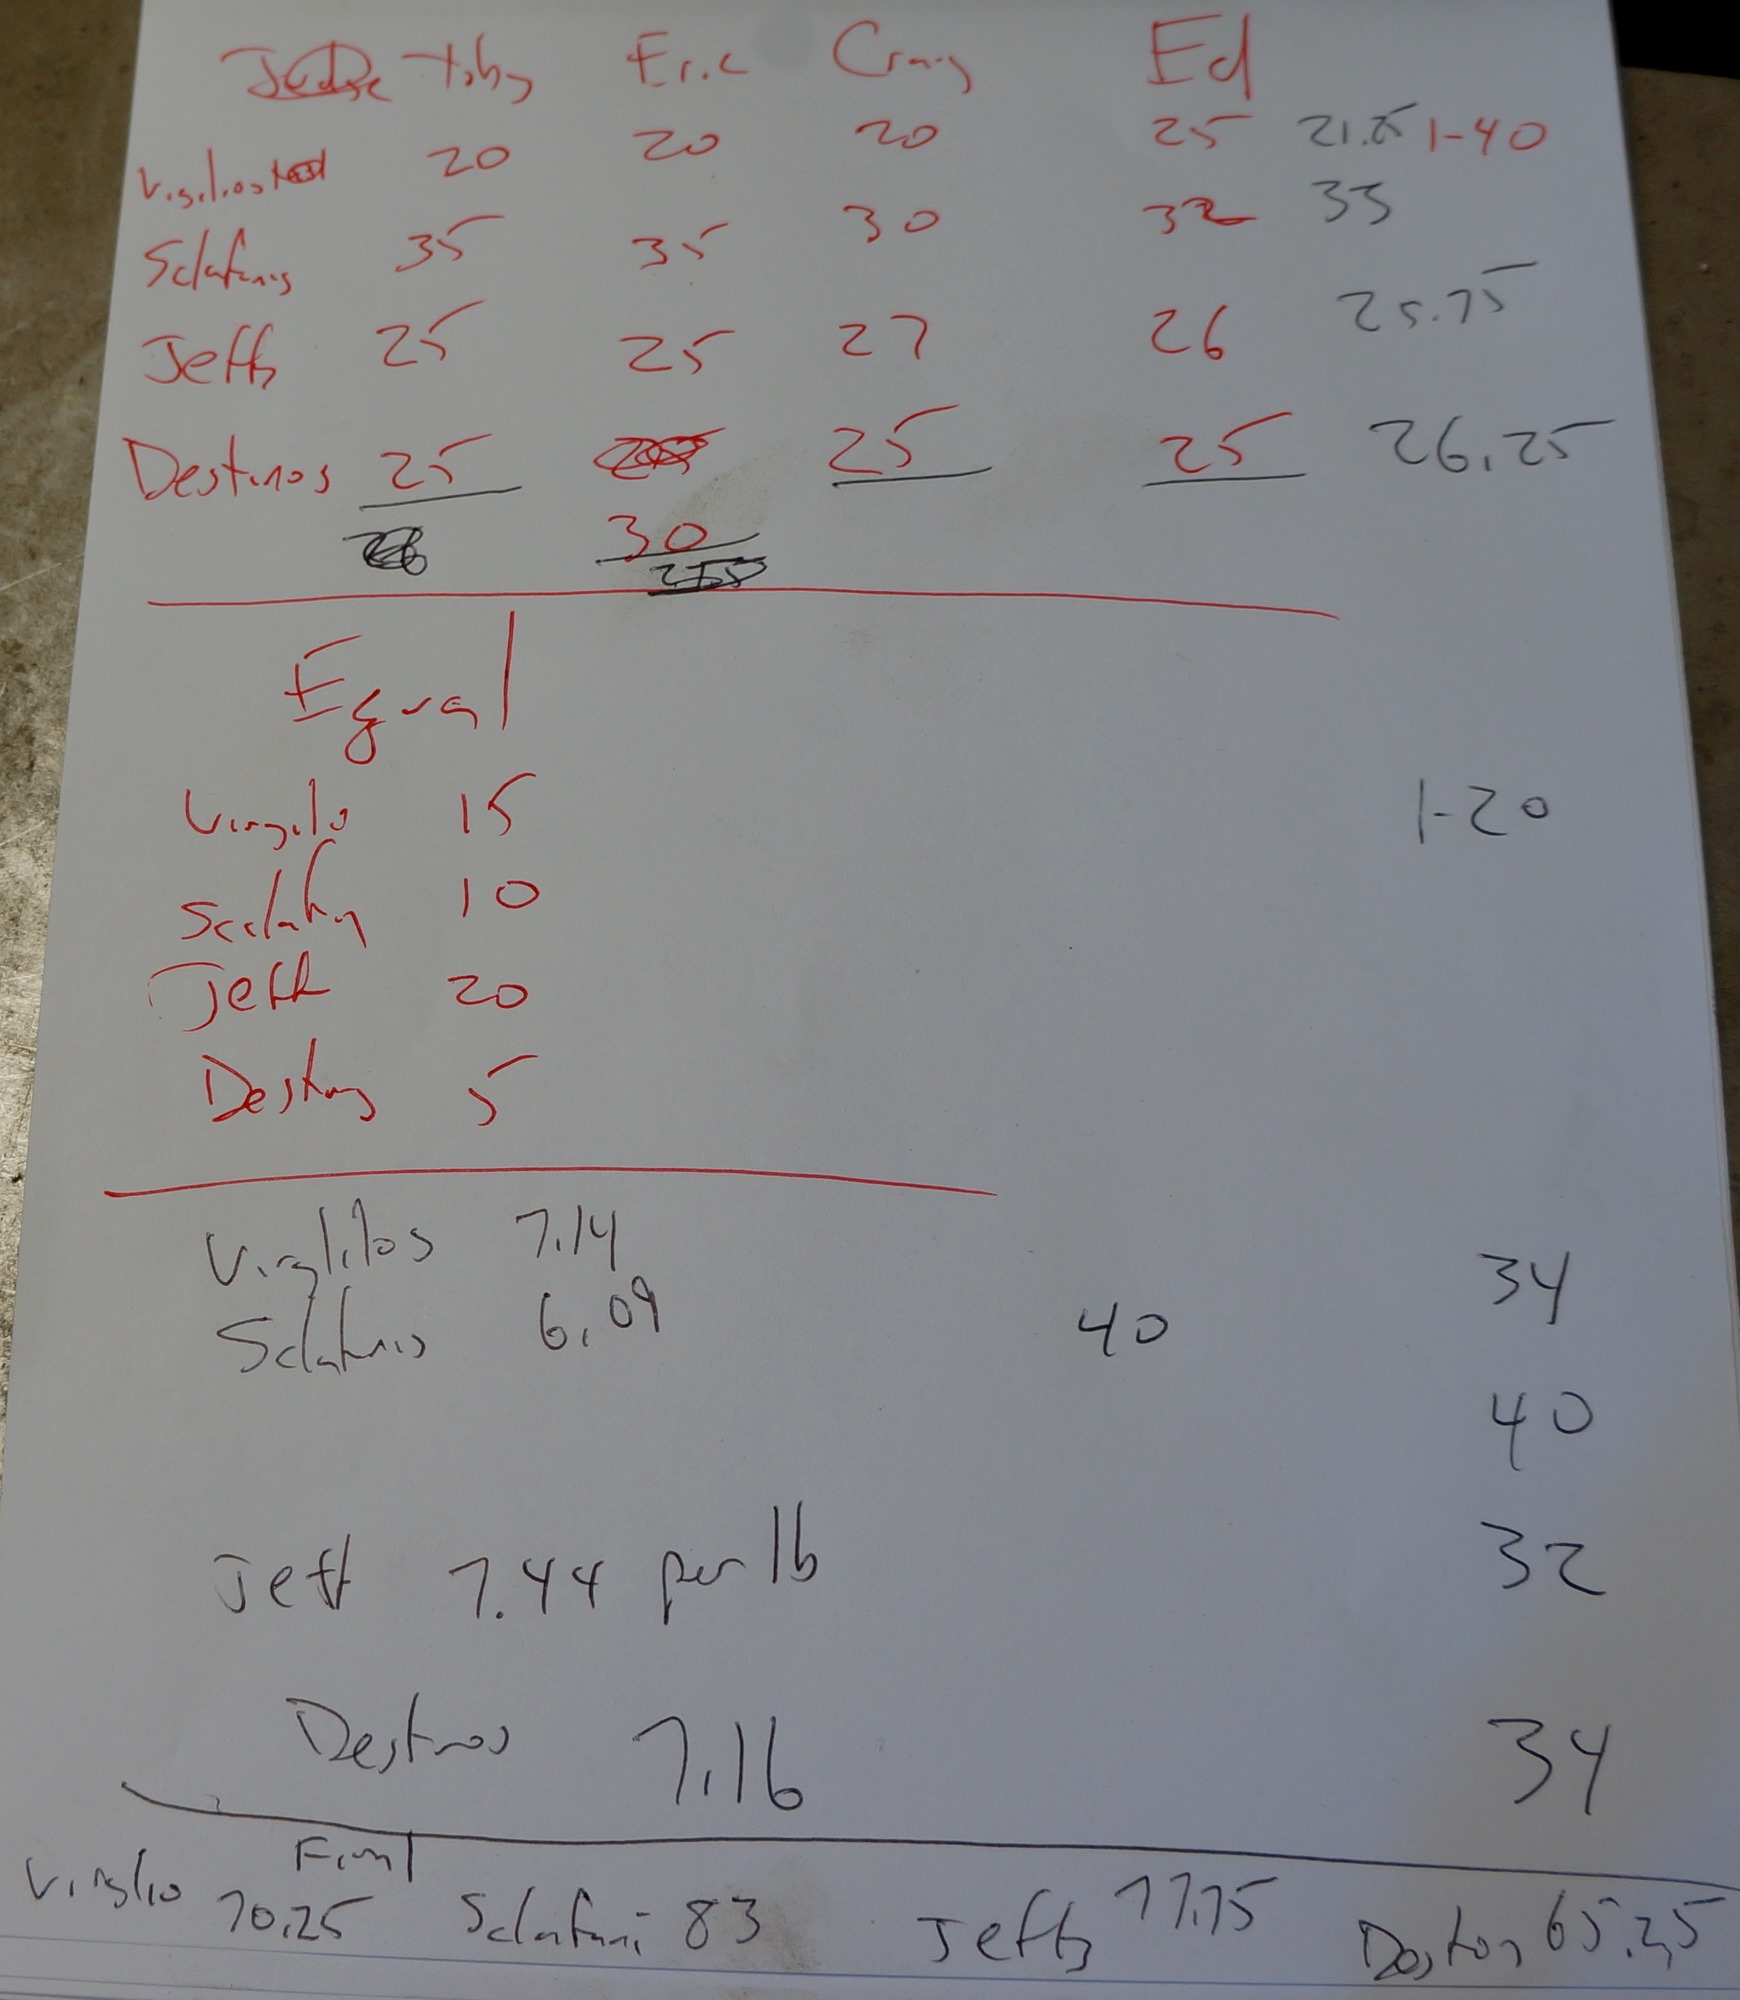 Toby Eric Craig Ed
Virgilios 20 20 20 25 21.25 1-40
Sclafanis 35 35 30 32 33
Jeffs 25 25 27 26 25.75
Destinos 25 25 25 26.25
30
Equal
Virgilo 15
1-20
10
Jeff 20
5
Virglilos 7.14
34
Sclafanis 6.09 40
40
Jeff 7.44 per lb
32
Destinos 7.16
34
Final
Virglio 70.25 Sclafani 83 Jeffs 77.75 65.25